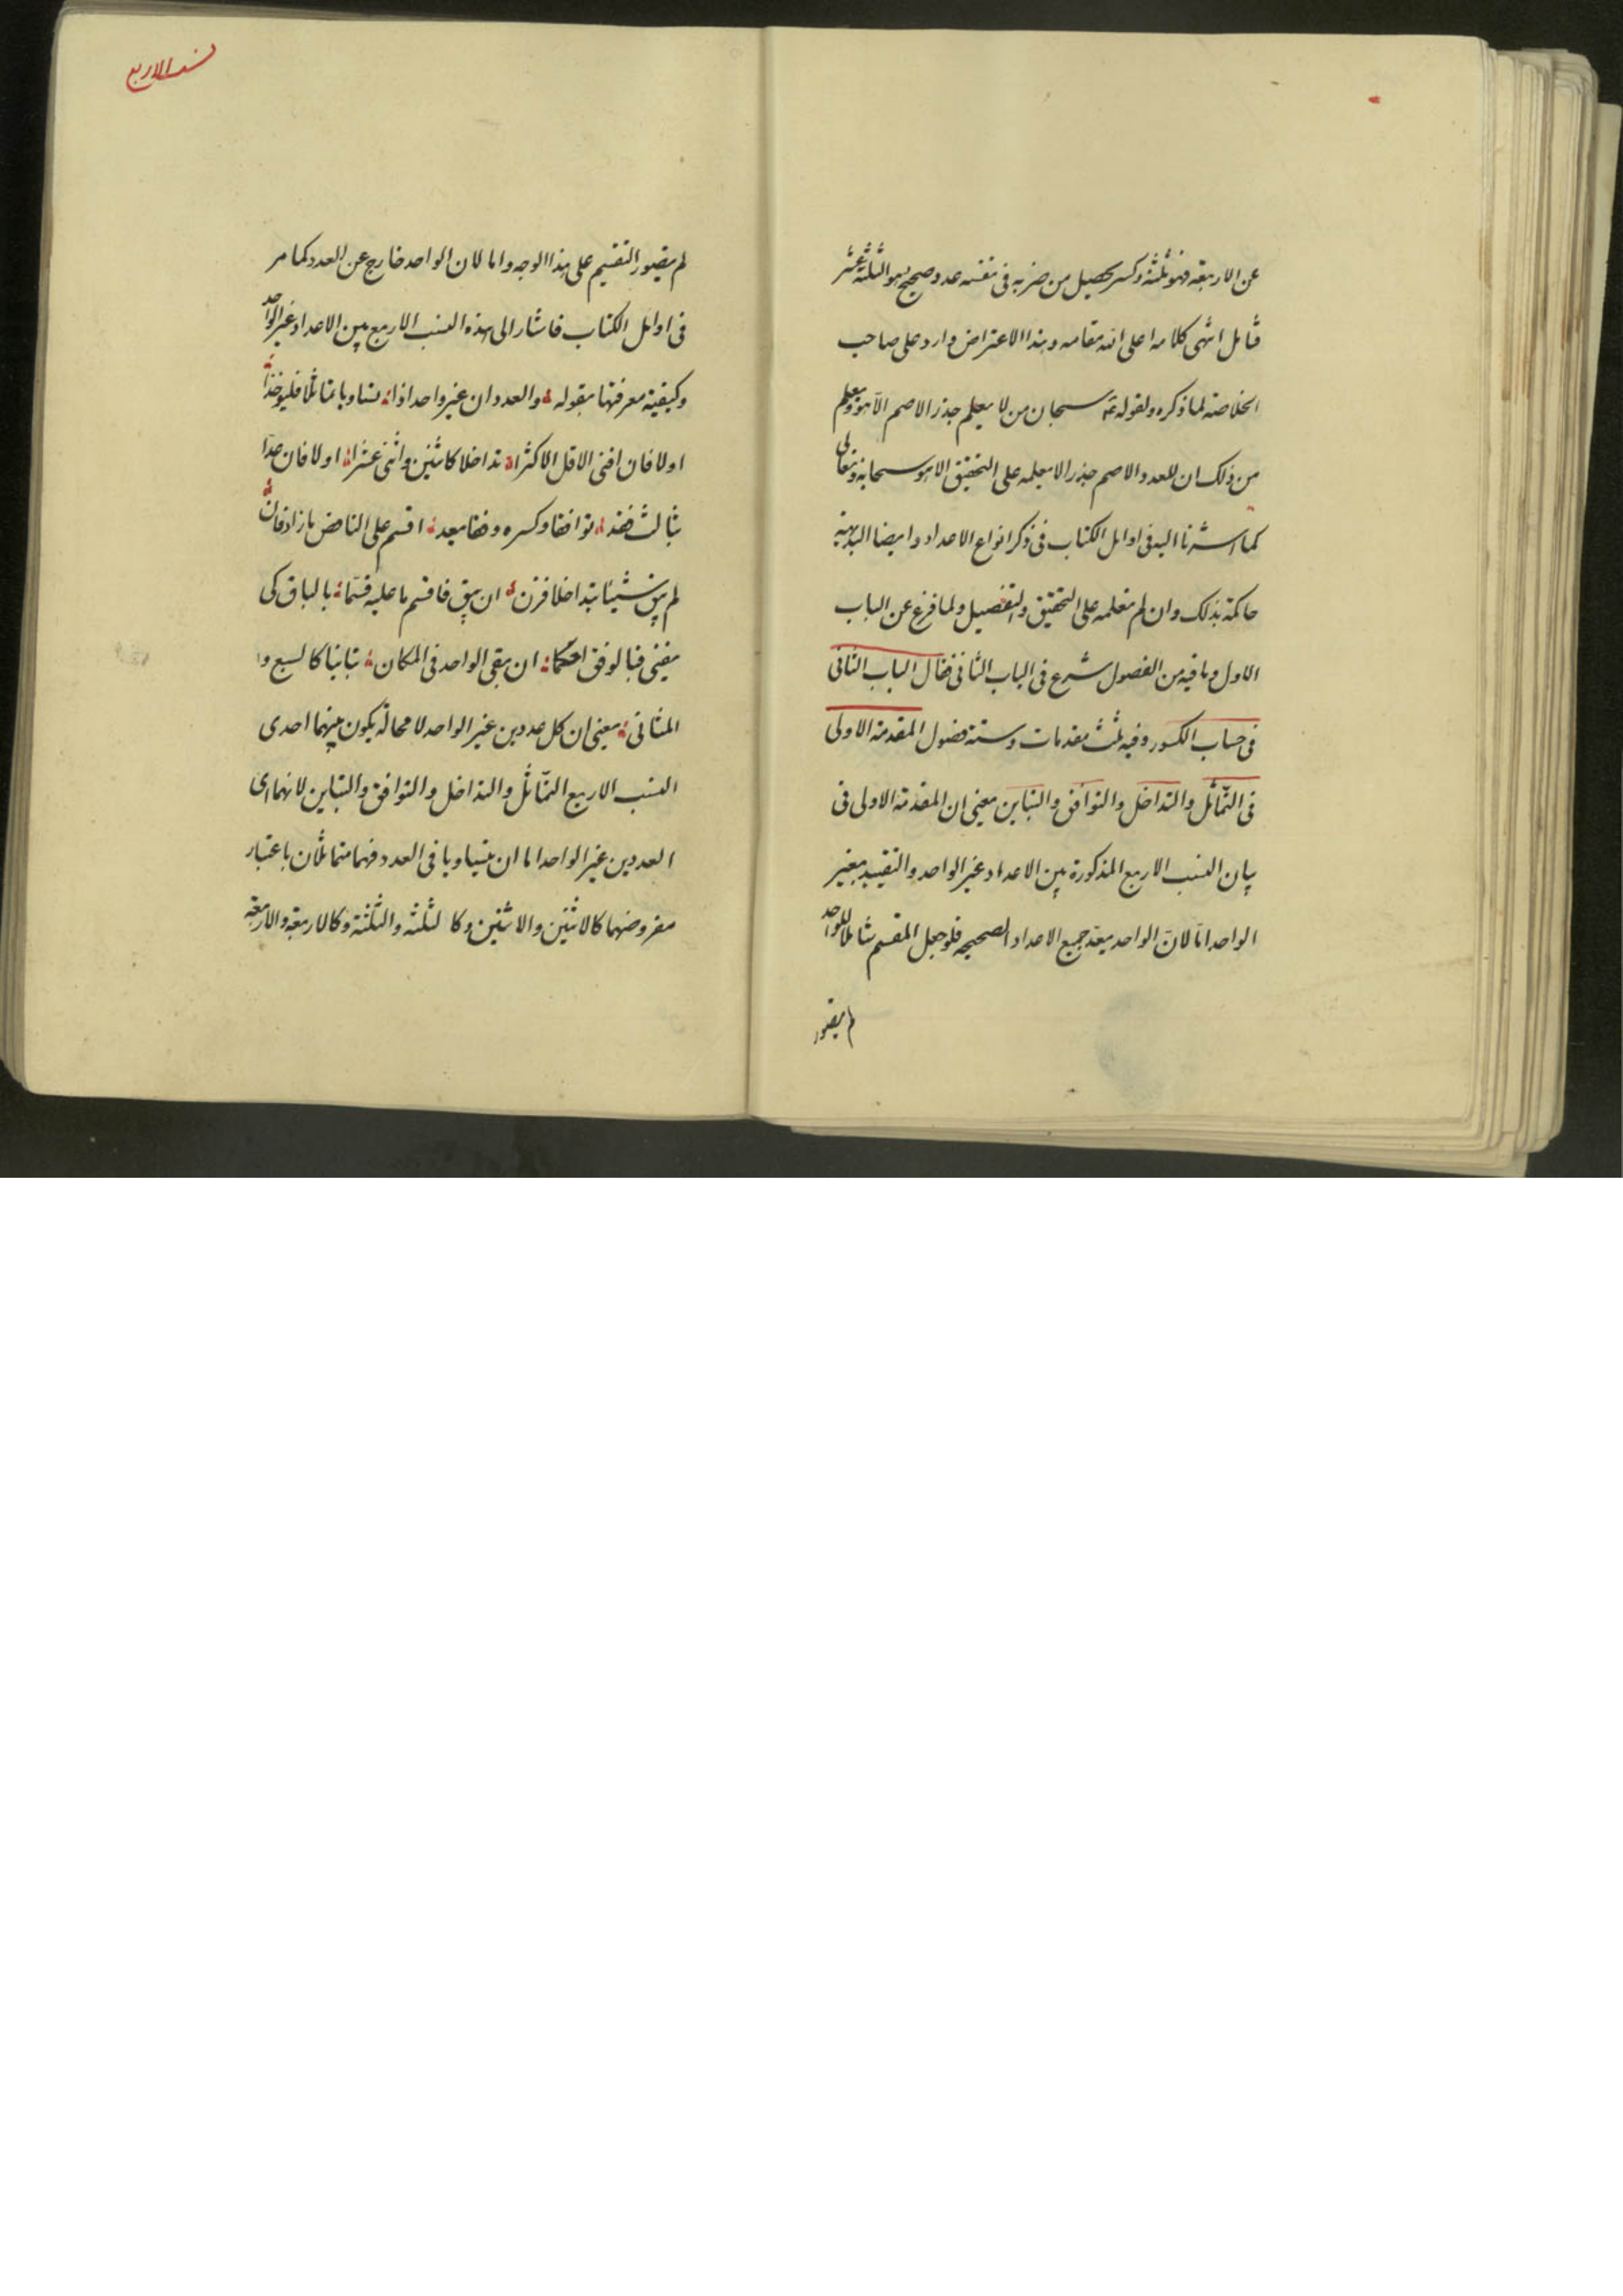 عن الاربعة فهو ثلثة وكسر يحصل من ضربه فى نفسه عدد صحيح هو الثلثة عشر
قابل انتهى كلامه اعلى الله مقامه وهذا الاعتراض وارد على صاحب
الخلاصة لما ذكره ولقوله سبحان من لا يعلم جذر الاصم الا هو ويعلم
من ذلك ان للعدد الاصم جذرا لا يعلمه على التحقيق الا هو سبحانه وتعالى
كما اشرنا اليه فى اوايل الكتاب فى ذكر انواع الاعداد وايضا البديهة
حاكمة بذلك وان لم نعلمه على التحقيق والتفصيل ولما فرغ عن الباب
الاول وما فيه من الفصول شرع فى الباب الثانى فقال الباب الثانى
فى حساب الكسور وفيه ثلث مقدمات وستة فصول المقدمة الاولى
فى التماثل والتداخل والتوافق والتباين يعنى ان المقدمة الاولى فى
بيان النسب الاربع المذكورة بين الاعداد غير الواحد والتقييد بغير
الواحد امّا لانّ الواحد يعدّ جميع الاعداد الصحيحه فلو جعل المقسم شاملا للواحد
لم يتصور
نسب الاربع
لم يتصور التقسيم على هذا الوجه واما لان الواحد خارج عن العدد كما مر
فى اوايل الكتاب فاشار الى هذه النسب الاربع بين الاعداد غير الواحد
وكيفية معرفتها بقوله والعددان غير واحد اذا تساويا تماثلا فليؤخذا
اولا فان افنى الاقل الاكثرا تداخلا كاثنين واثنى عشرا اولا فان عدا
بثالث فخذ توافقا وكسره وفقا يعد اقسم على الناقص ما زاد فان
لم يبق شيئا بتداخلا قرن ان يبق فاقسم ما عليه قسّما بالباق كى
يفنى فبالوفق احكما ان بقى الواحد فى المكان تباينا كالسبع و
المثانى يعنى ان كل عددين غير الواحد لا محالة يكون بينهما احدى
النسب الاربع التماثل والتداخل والتوافق والتباين لانهما اى
العددين غير الواحد اما ان يتساويا فى العدد فهما متماثلان باعتبار
معروضهما كالاثنين والاثنين وكا لثلثة والثلثة وكالاربعة والاربعة